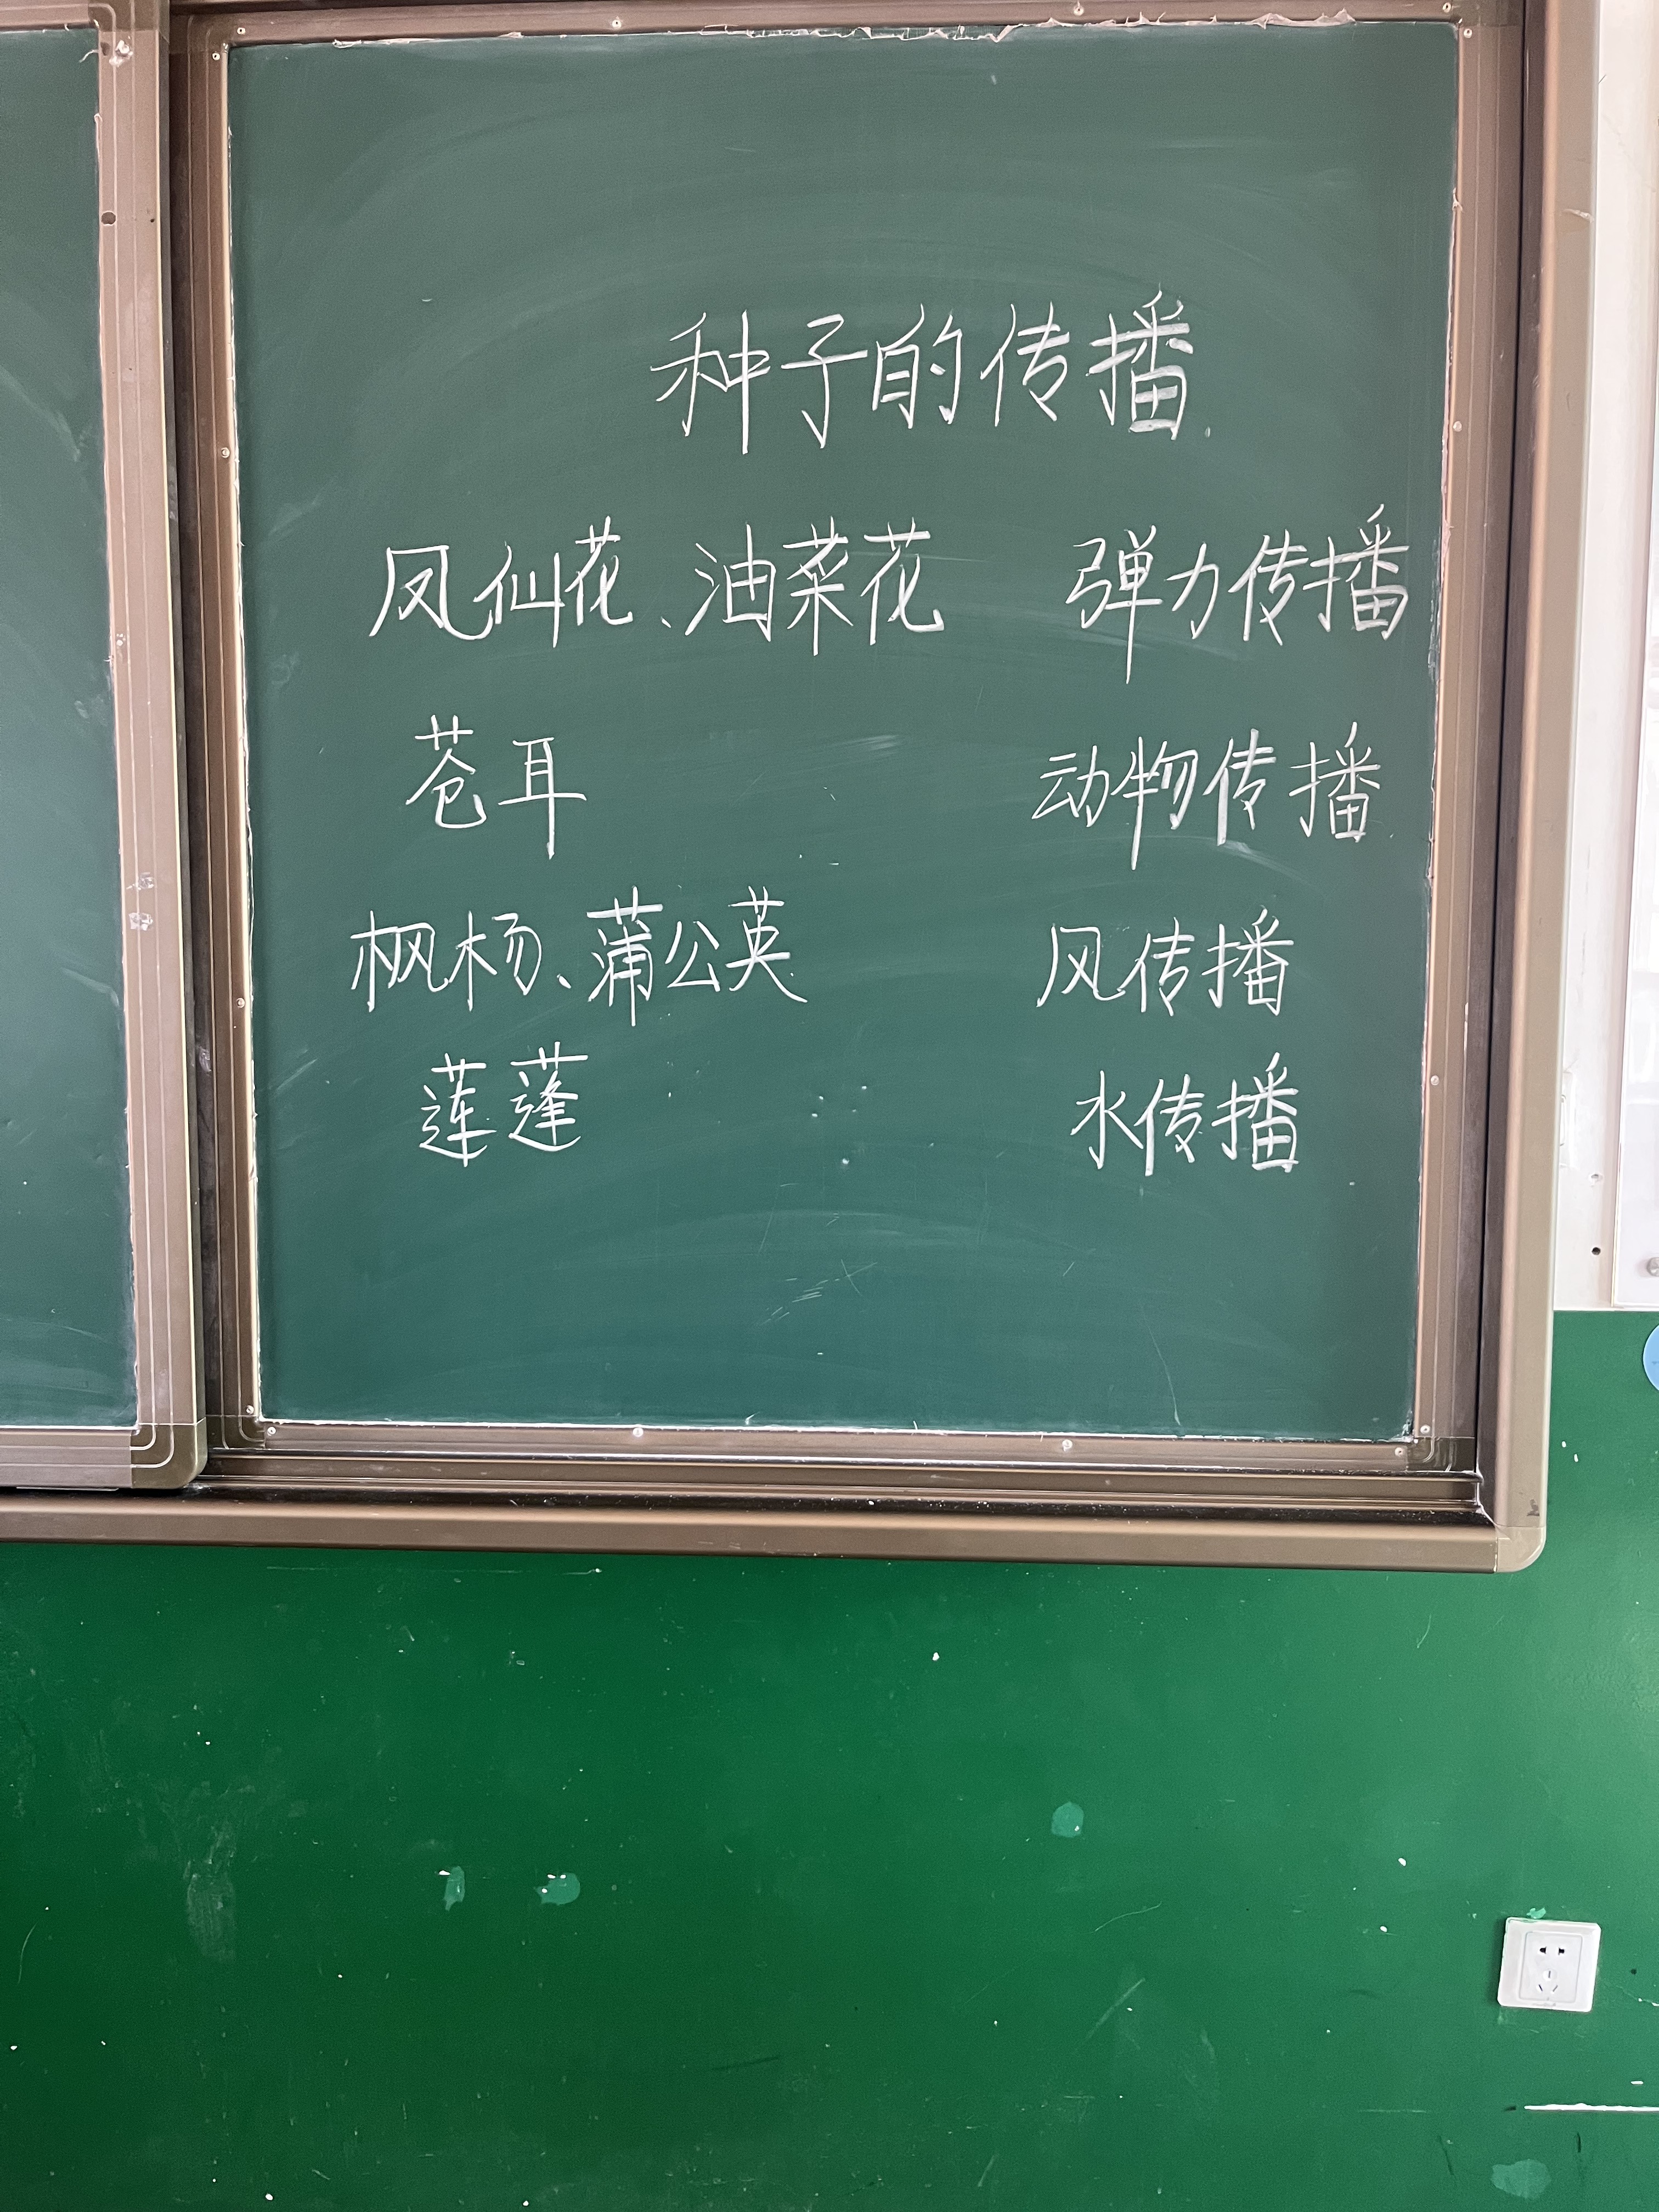 种子的传播
凤仙花、油菜花 弹力传播
苍耳 动物传播
枫杨、蒲公英 风传播
莲蓬 水传播